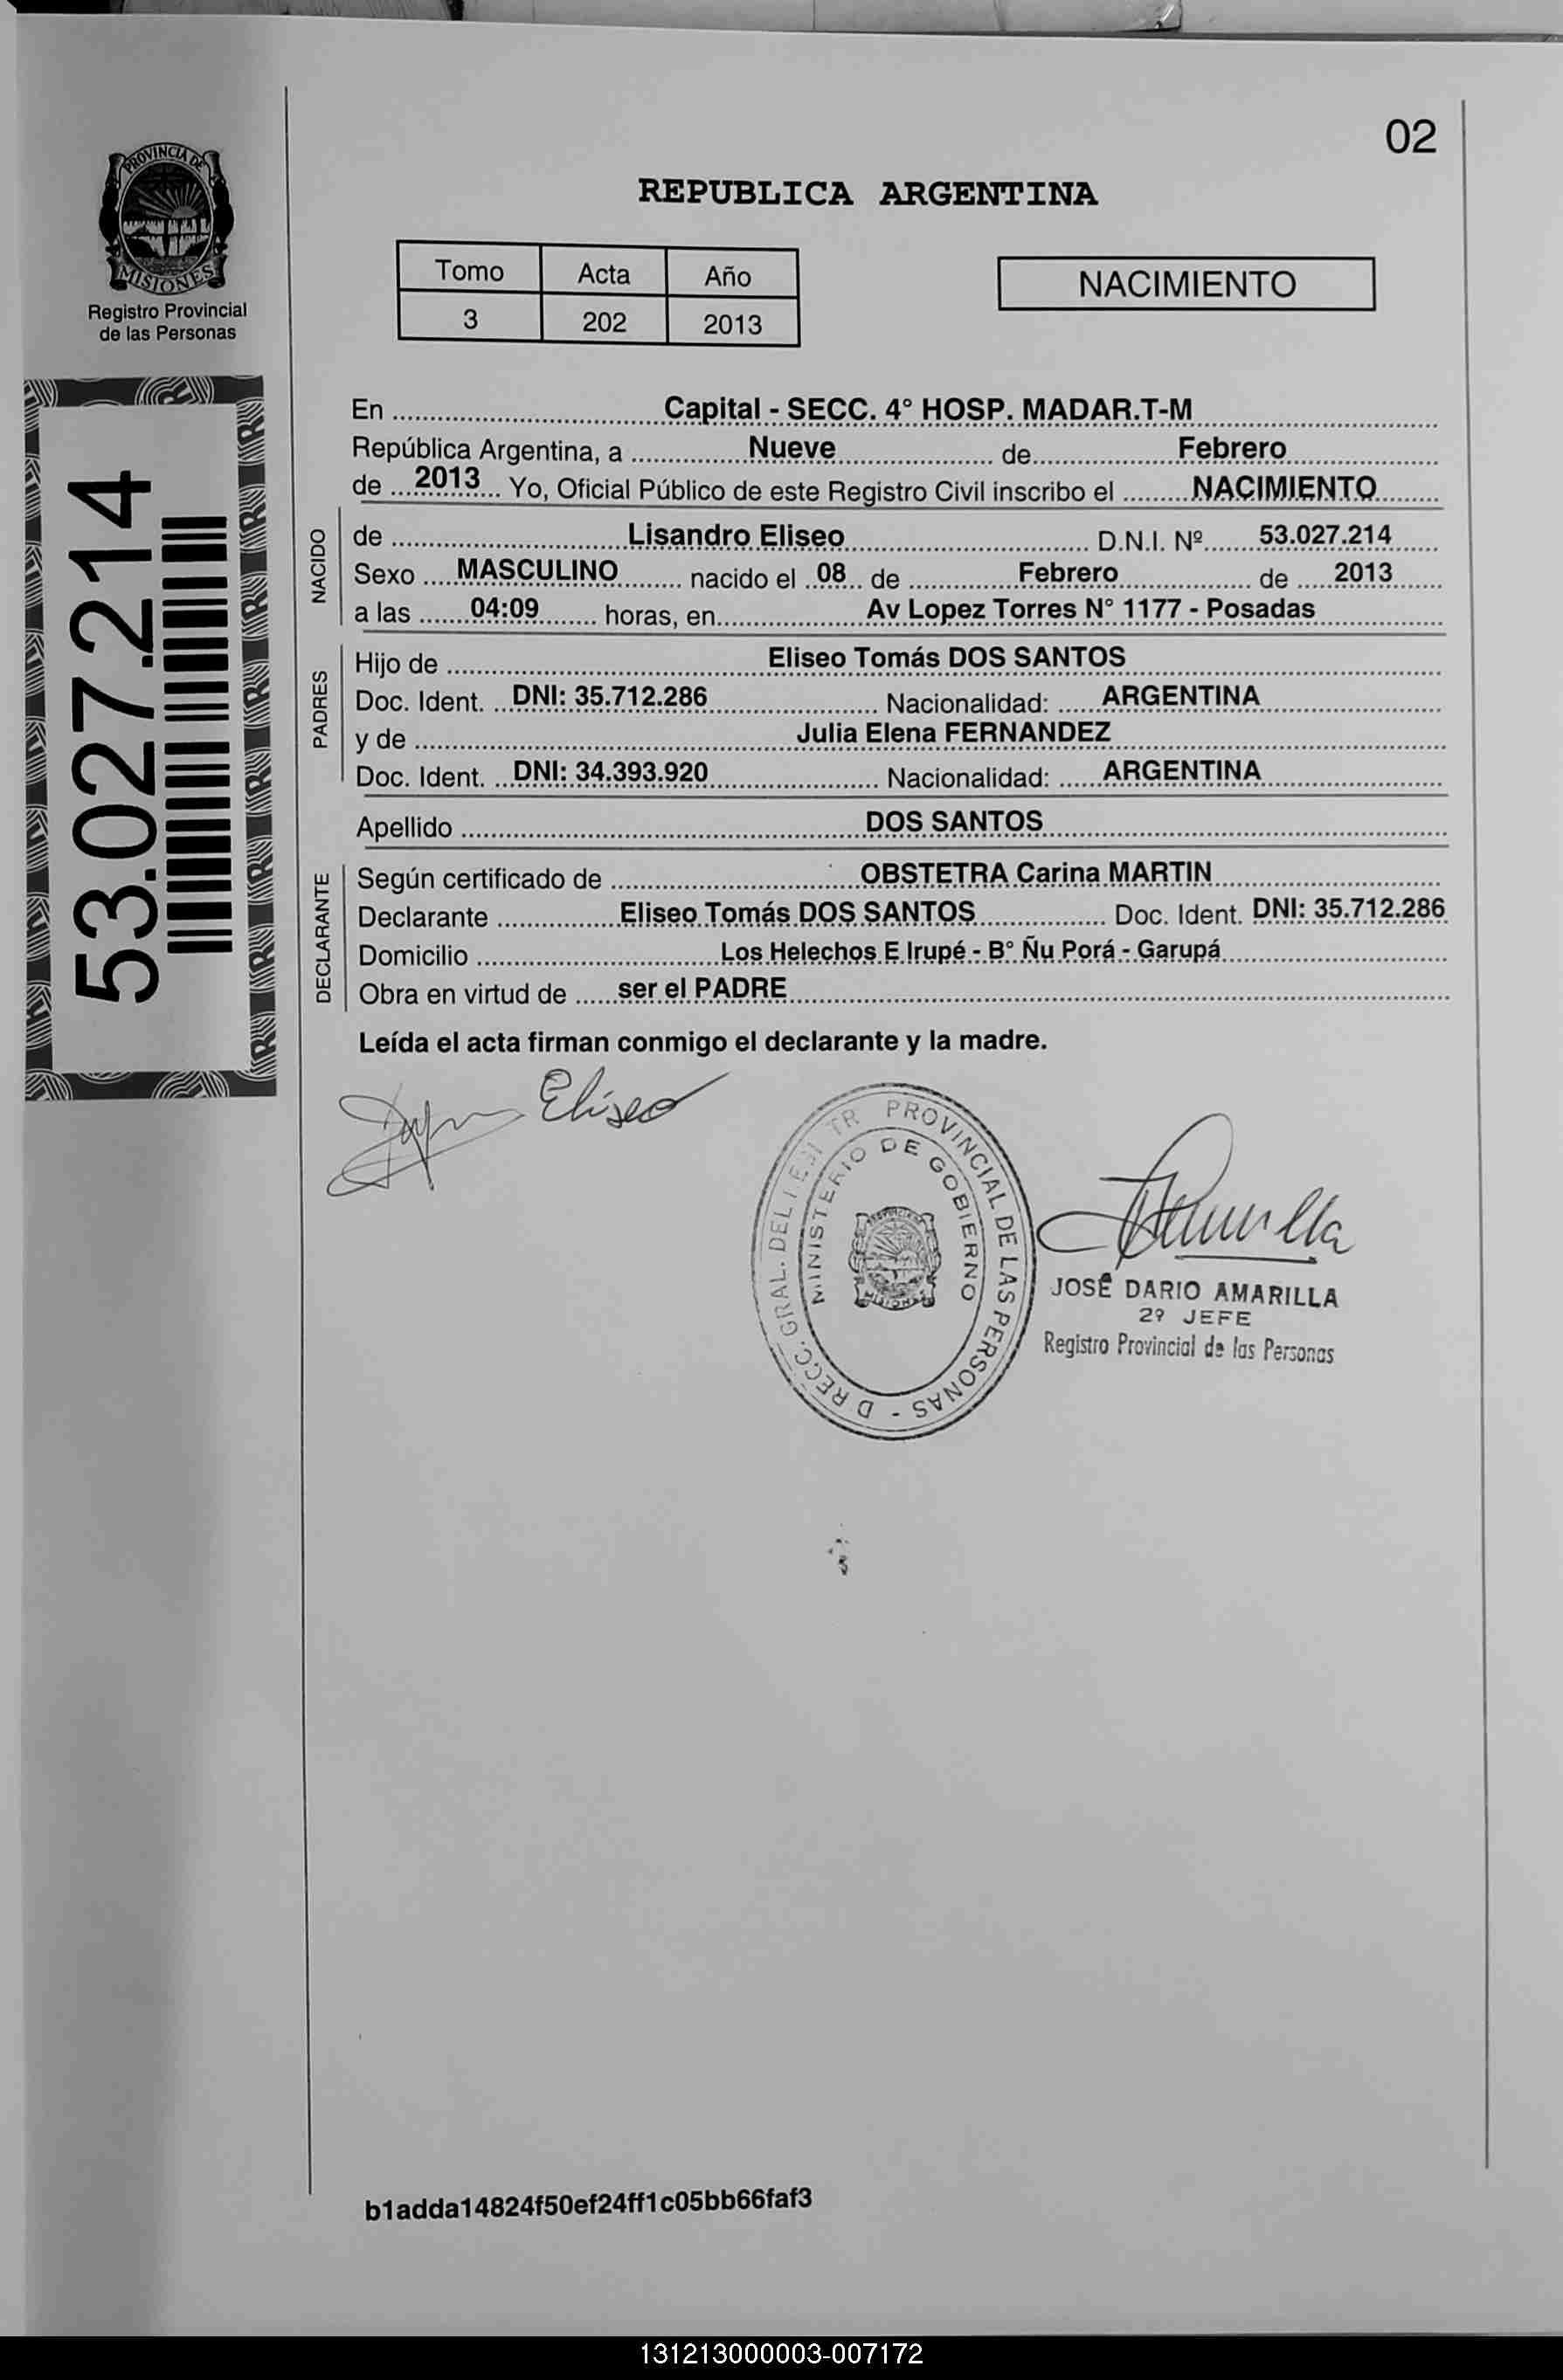 02
PROVINCIA DE
MISIONES
Registro Provincial
de las Personas
REPUBLICA ARGENTINA
Tomo Acta Año
3 202 2013
NACIMIENTO
53.027.214
En Capital - SECC. 4° HOSP. MADAR.T-M
República Argentina, a Nueve de Febrero
de 2013 Yo, Oficial Público de este Registro Civil inscribo el NACIMIENTO
NACIDO
de Lisandro Eliseo D.N.I. Nº 53.027.214
Sexo MASCULINO nacido el 08 de Febrero de 2013
a las 04:09 horas, en Av Lopez Torres N° 1177 - Posadas
PADRES
Hijo de Eliseo Tomás DOS SANTOS
Doc. Ident. DNI: 35.712.286 Nacionalidad: ARGENTINA
y de Julia Elena FERNANDEZ
Doc. Ident. DNI: 34.393.920 Nacionalidad: ARGENTINA
Apellido DOS SANTOS
DECLARANTE
Según certificado de OBSTETRA Carina MARTIN
Declarante Eliseo Tomás DOS SANTOS Doc. Ident. DNI: 35.712.286
Domicilio Los Helechos E Irupé - B° Ñu Porá - Garupá
Obra en virtud de ser el PADRE
Leída el acta firman conmigo el declarante y la madre.
Eliseo
PROVINCIAL DE LAS PERSONAS -
MINISTERIO DE GOBIERNO
JOSÉ DARIO AMARILLA
2º JEFE
Registro Provincial de las Personas
b1adda14824f50ef24ff1c05bb66faf3
131213000003-007172